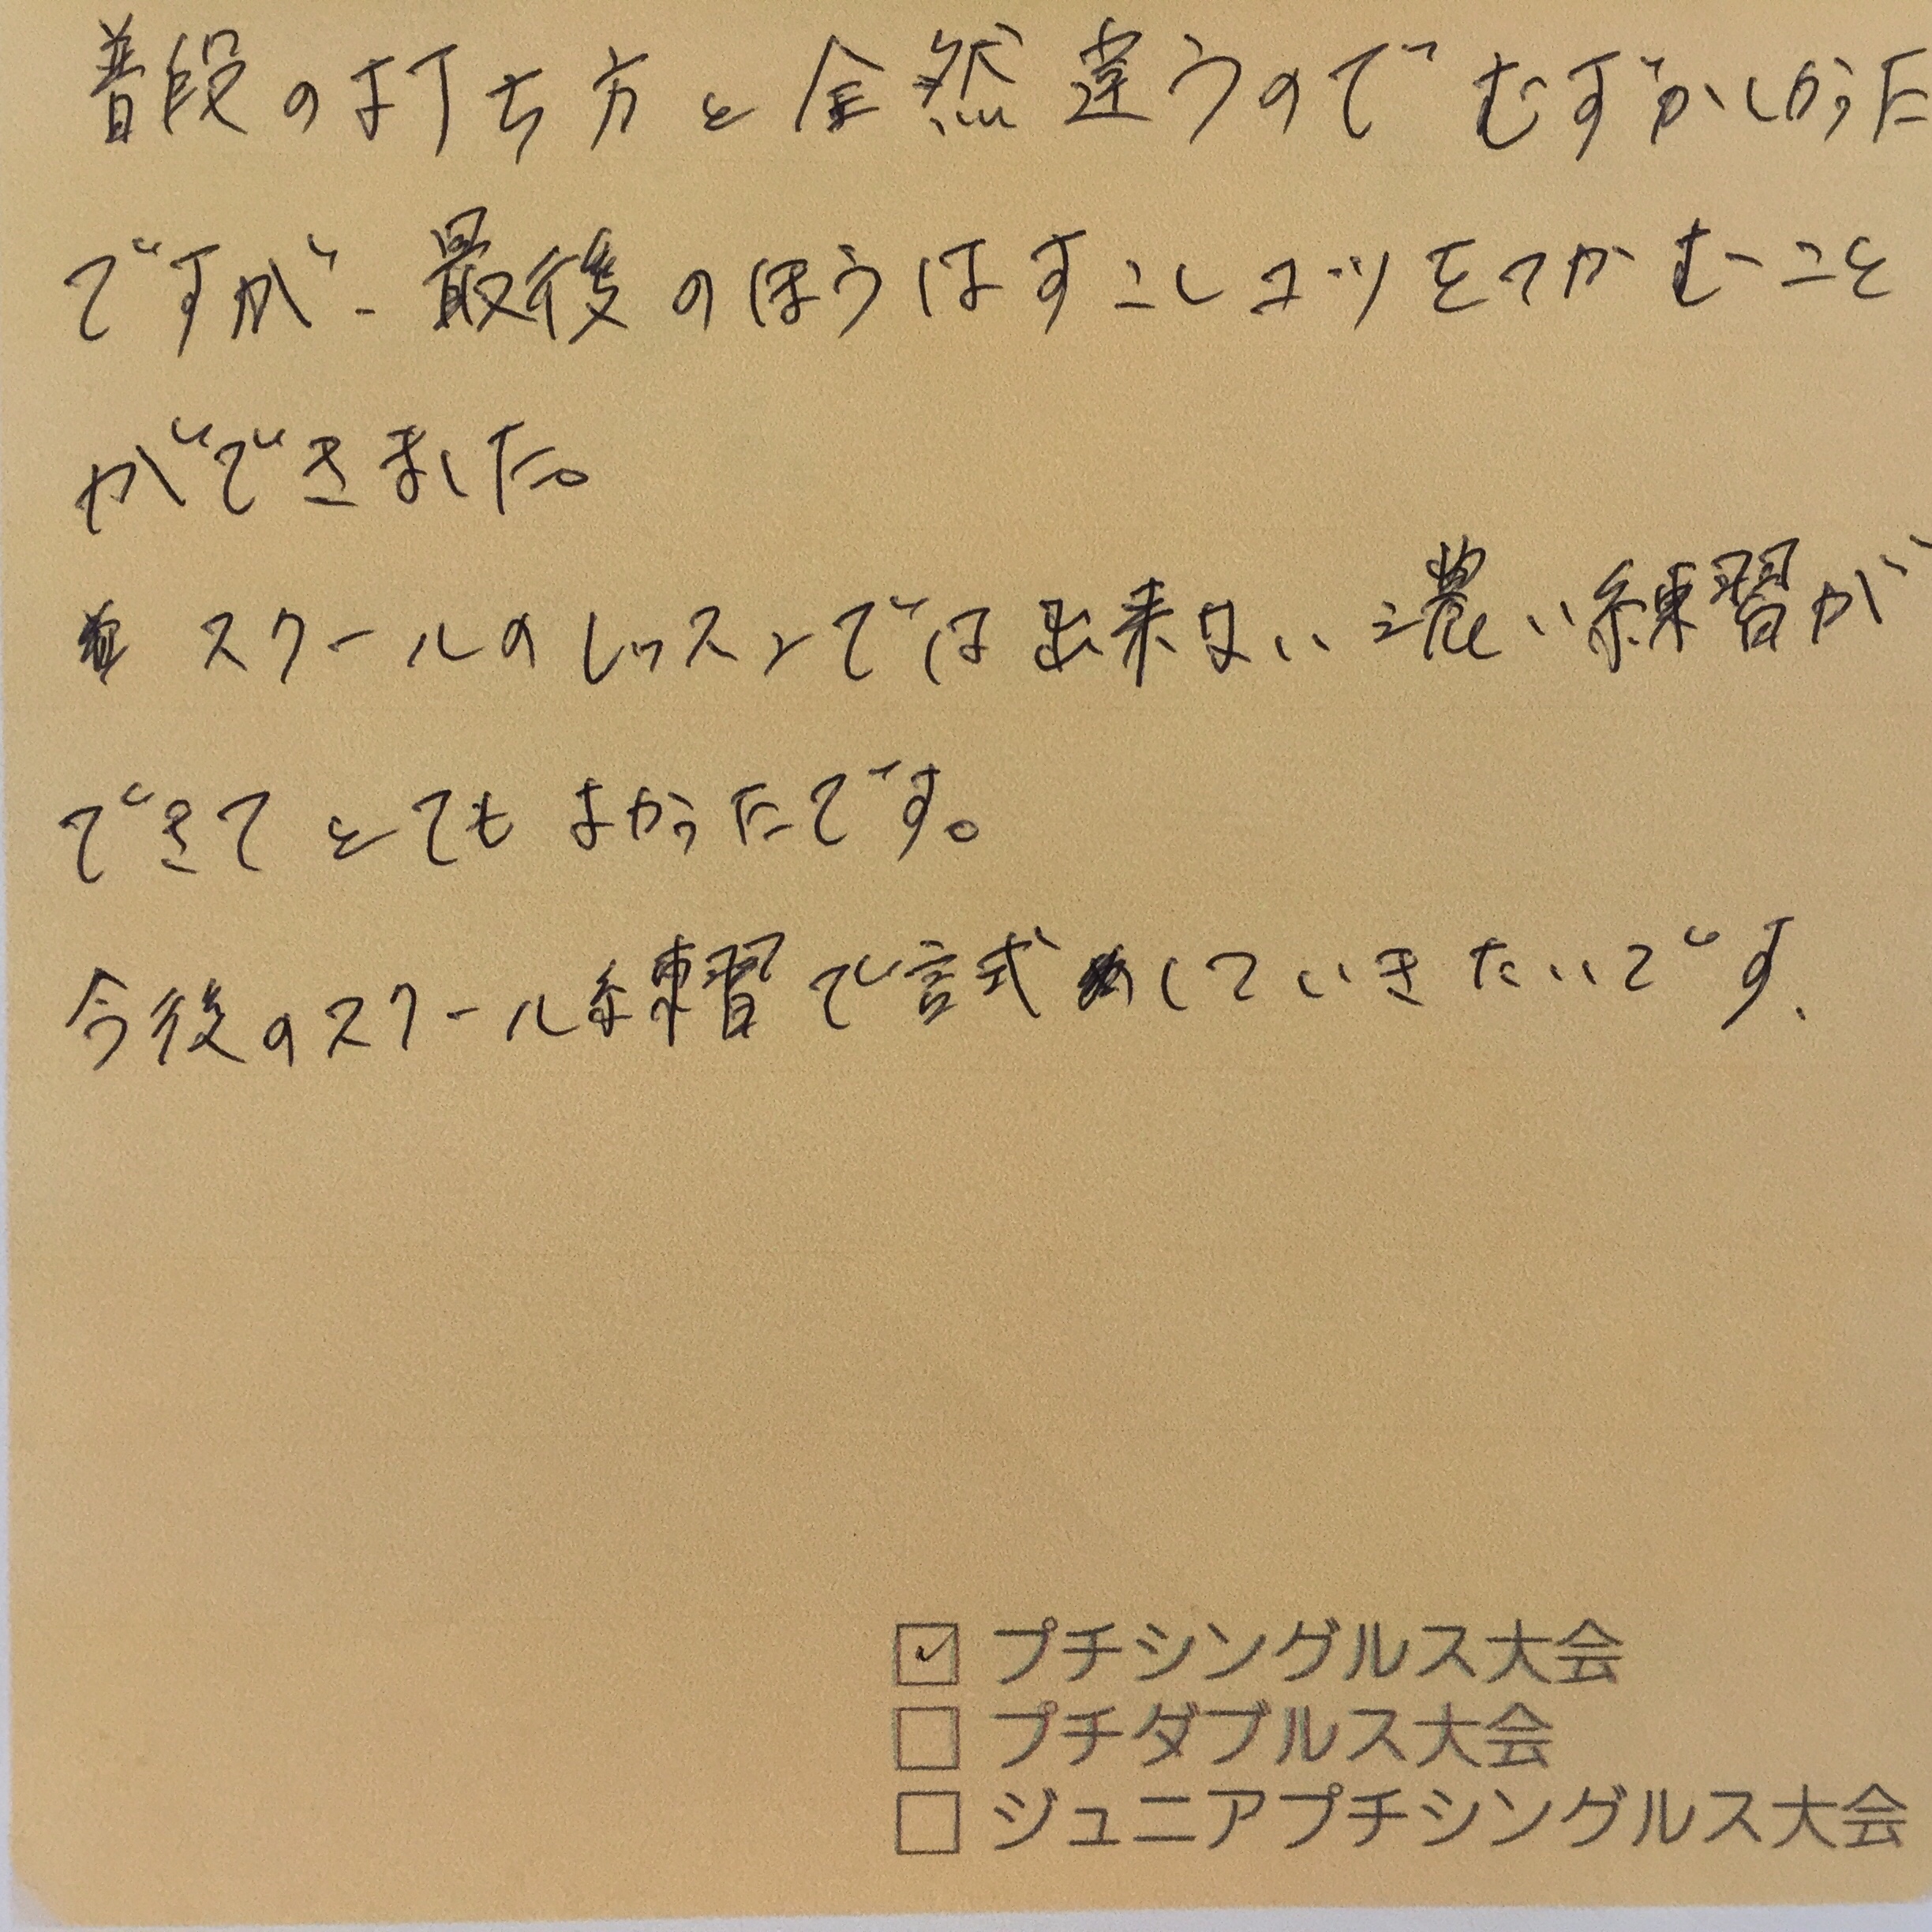 普段の打ち方と全然違うのでむずかしかった
ですが、最後のほうはすこしコツをつかむこと
ができました。
スクールのレッスンでは出来ない濃い練習が
できてとてもよかったです。
今後のスクール練習で試していきたいです.
☑ プチシングルス大会
☐ プチダブルス大会
☐ ジュニアプチシングルス大会